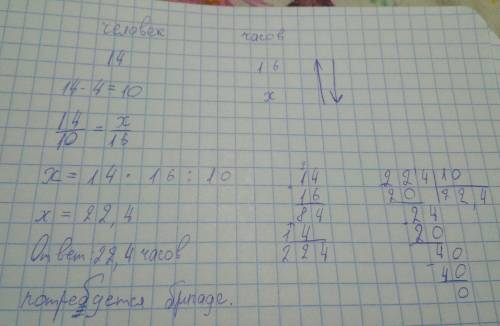 человек часов
14 16
14-4=10 x
14/10 = x/16
x = 14 · 16 : 10
x = 22,4
Ответ: 22,4 часов
потребуется бригаде.
14
16
84
14
224
224 10
20 22,4
24
20
40
40
0